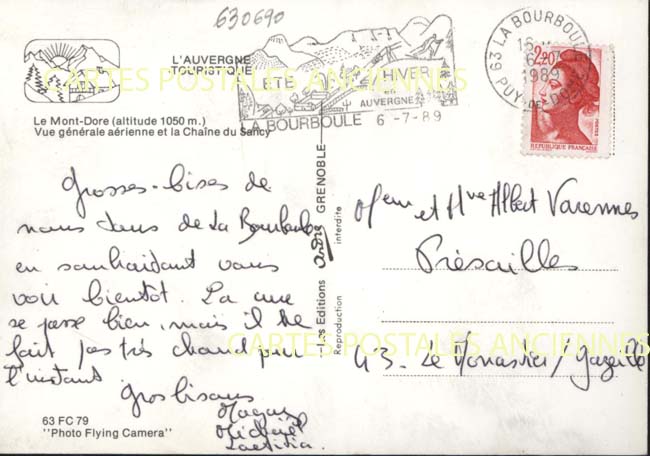 630690
L'AUVERGNE
TOURISTIQUE
Le Mont-Dore (altitude 1050 m.)
Vue générale aérienne et la Chaîne du Sancy
ÉTÉ HIVER
AUVERGNE
LA BOURBOULE 6 -7-89
63 LA BOURBOULE
1989
PUY-DE-DOME
2,20
REPUBLIQUE FRANÇAISE
CARTES POSTALES ANCIENNES
Grosses bises de
nous tous de La Bourboule
en souhaitant vous
voir bientôt. La cure
se passe bien, mais il ne
fait pas très chaud pour
l'instant
Gros bisous
Michael
Laetitia.
Les Editions André GRENOBLE
Reproduction interdite
Mr et Mme Albert Varennes
Présailles
43 - Le Monastier / Gazeille
CARTES POSTALES ANCIENNES
63 FC 79
"Photo Flying Camera"